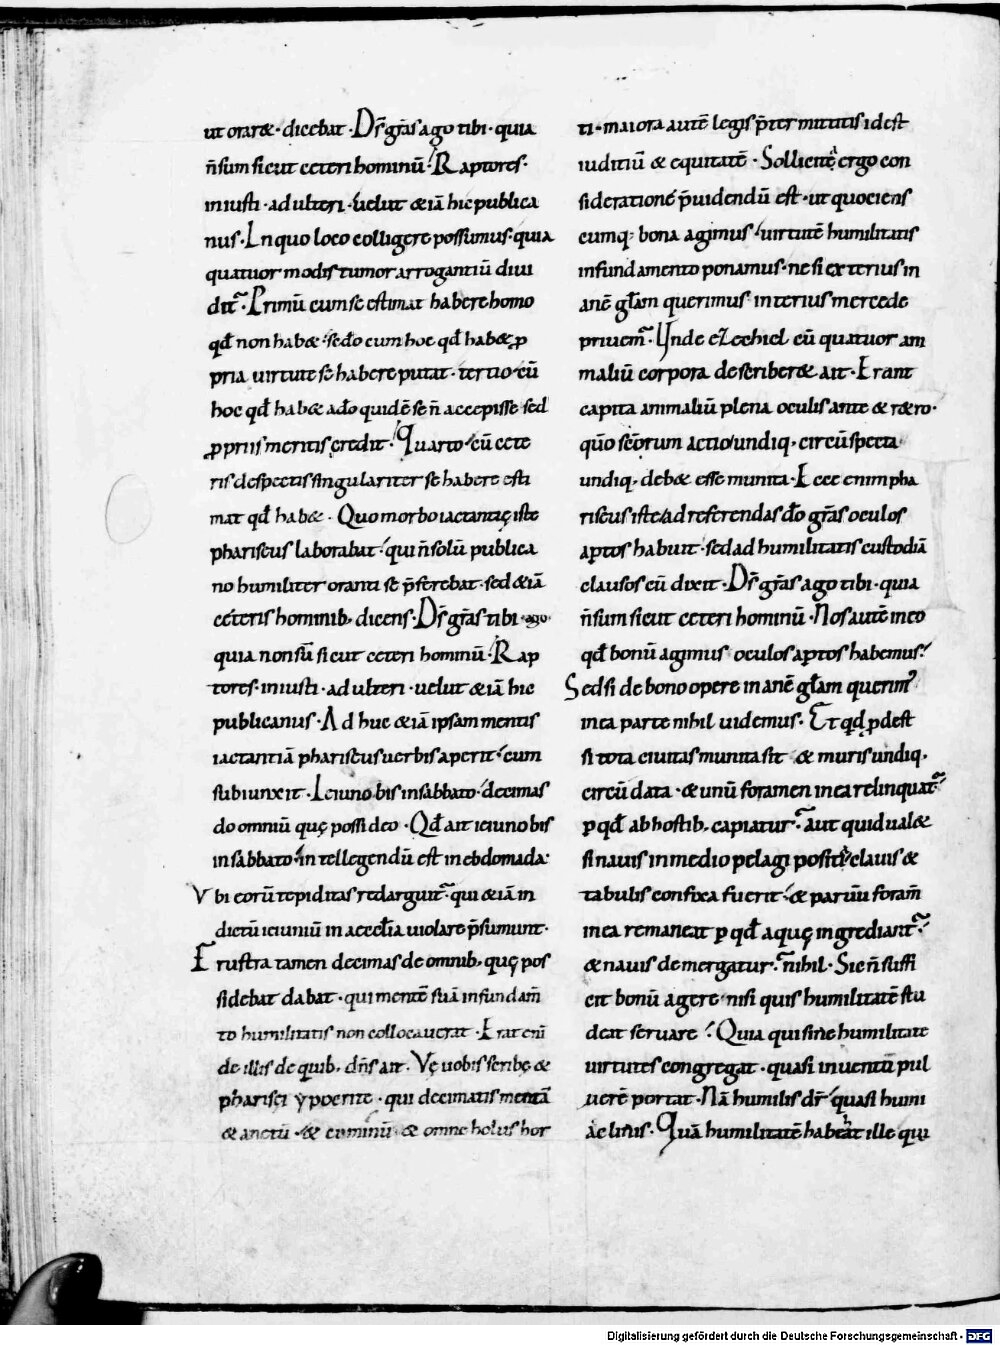 ut orar&·dicebat·Dſ̄ gr̄as ago tibi·quia
n̄ sum sicut ceteri hominū·Raptores·
iniusti·adulteri·uelut &iā hic publica
nus·In quo loco colligere possumus·quia
quatuor modis tumor arrogantiū diui
dit̄·Primū cum se estimat habere homo
qd̄ non hab&·sc̄do cum hoc qd̄ hab& ꝓ
pria uirtute se habere putat·tertio cū
hoc qd̄ hab& a dō quidē se n̄ accepisse sed
ꝓpriis meritis credit·Quarto·cū cete
ris despectis singulariter se habere esti
mat qd̄ hab&·Quo morbo iactantię iste
phariseus laborabat·qui n̄ solū publica
no humiliter oranti se p̄ferebat·sed &iā
ceteris hominib; dicens·Dſ̄ gr̄as tibi·ago·
quia non sū sicut ceteri hominū·Rap
tores·iniusti·adulteri·uelut &iā hic
publicanus·Adhuc &iā ipsam mentis
iactantiā phariseus uerbis aperit·cum
subiunxit·Ieiuno bis in sabbato·decimas
do omniū quę possideo·Qd̄ ait ieiuno bis
in sabbato·intellegendū est in ebdomada·
Vbi eorū tepiditas redarguit̄·qui &iā in
dictū ieiuniū in aeccl̄ia uiolare p̄sumunt·
Frustra tamen decimas de omnib; quę pos
sidebat dabat·qui mentē suā in fundam̄
to humilitatis non collocauerat·Erat eni
de illis de quib; dn̄s ait·Vę uobis scribę &
pharisei ypocrite·qui decimatis mentā
& anetū·& ciminū·& omne holus hor
ti·maiora autē legis p̄termittitis id est
iuditiū & equitatē·Sollicite ergo con
sideratione p̄uidendū est·ut quociens
cumq; bona agimus·uirtutē humilitatis
in fundamento ponamus·ne si exterius in
anē gl̄am querimus interius mercede
priuem̄·Unde eZechiel cū quatuor ani
maliū corpora describer& ait·Erant
capita animaliū plena oculis ante & r&ro·
quō sc̄orum actio undiq; circūspecta
undiq; deb& esse munita·Ecce enim pha
riseus iste ad referendas dō gr̄as oculos
aptos habuit·sed ad humilitatis custodiā
clausos cū dixit·Dſ̄ gr̄as ago tibi·quia
n̄ sum sicut ceteri hominū·Nos autē in eo
qd̄ bonū agimus oculos aptos habemus·
Sed si de bono opere inanē gl̄am querim'
in ea parte nihil uidemus·Et qd̄ ꝓdest
si tota ciuitas munita sit & muris undiq;
circūdata·& unū foramen in ea relinquat̄
ꝑ qd̄ ab hostib; capiatur·aut quid ual&
si nauis in medio pelagi posita clauis &
tabulis confixa fuerit·& paruū foram̄
in ea remaneat ꝑ qd̄ aquę ingrediant̄·
& nauis demergatur·nihil·Sic n̄ suffi
cit bonū agere·nisi quis humilitatē stu
deat seruare·Quia qui sine humilitate
uirtutes congregat·quasi in uentū pul
uerē portat·Nā humilis dr̄ quasi humi
acliuis·Quā humilitatē habeat ille qui